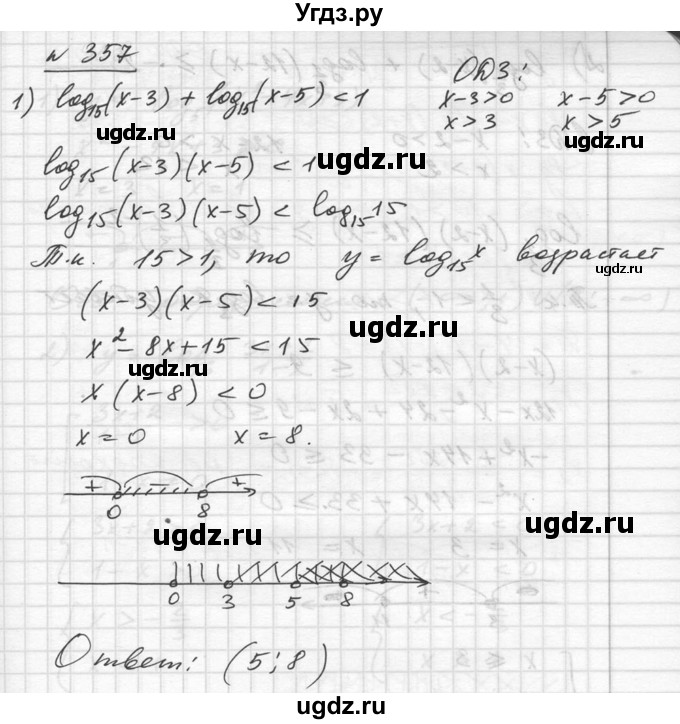 Угдз.ру
№ 357
1) log₁₅(x-3) + log₁₅(x-5) < 1
ОДЗ:
x-3>0 x-5>0
x>3 x>5
ugdz.ru
ugdz.ru
log₁₅(x-3)(x-5) < 1
ugdz.ru
log₁₅(x-3)(x-5) < log₁₅15
ugdz.ru
Т.к. 15>1, то y = log₁₅x возрастает
ugdz.ru
(x-3)(x-5)<15
ugdz.ru
x²-8x+15<15
ugdz.ru
x(x-8)<0
x=0 x=8.
+ - +
0 8
ugdz.ru
ugdz.ru
0 3 5 8
Ответ: (5;8)
ugdz.ru
ugdz.ru
ugdz.ru